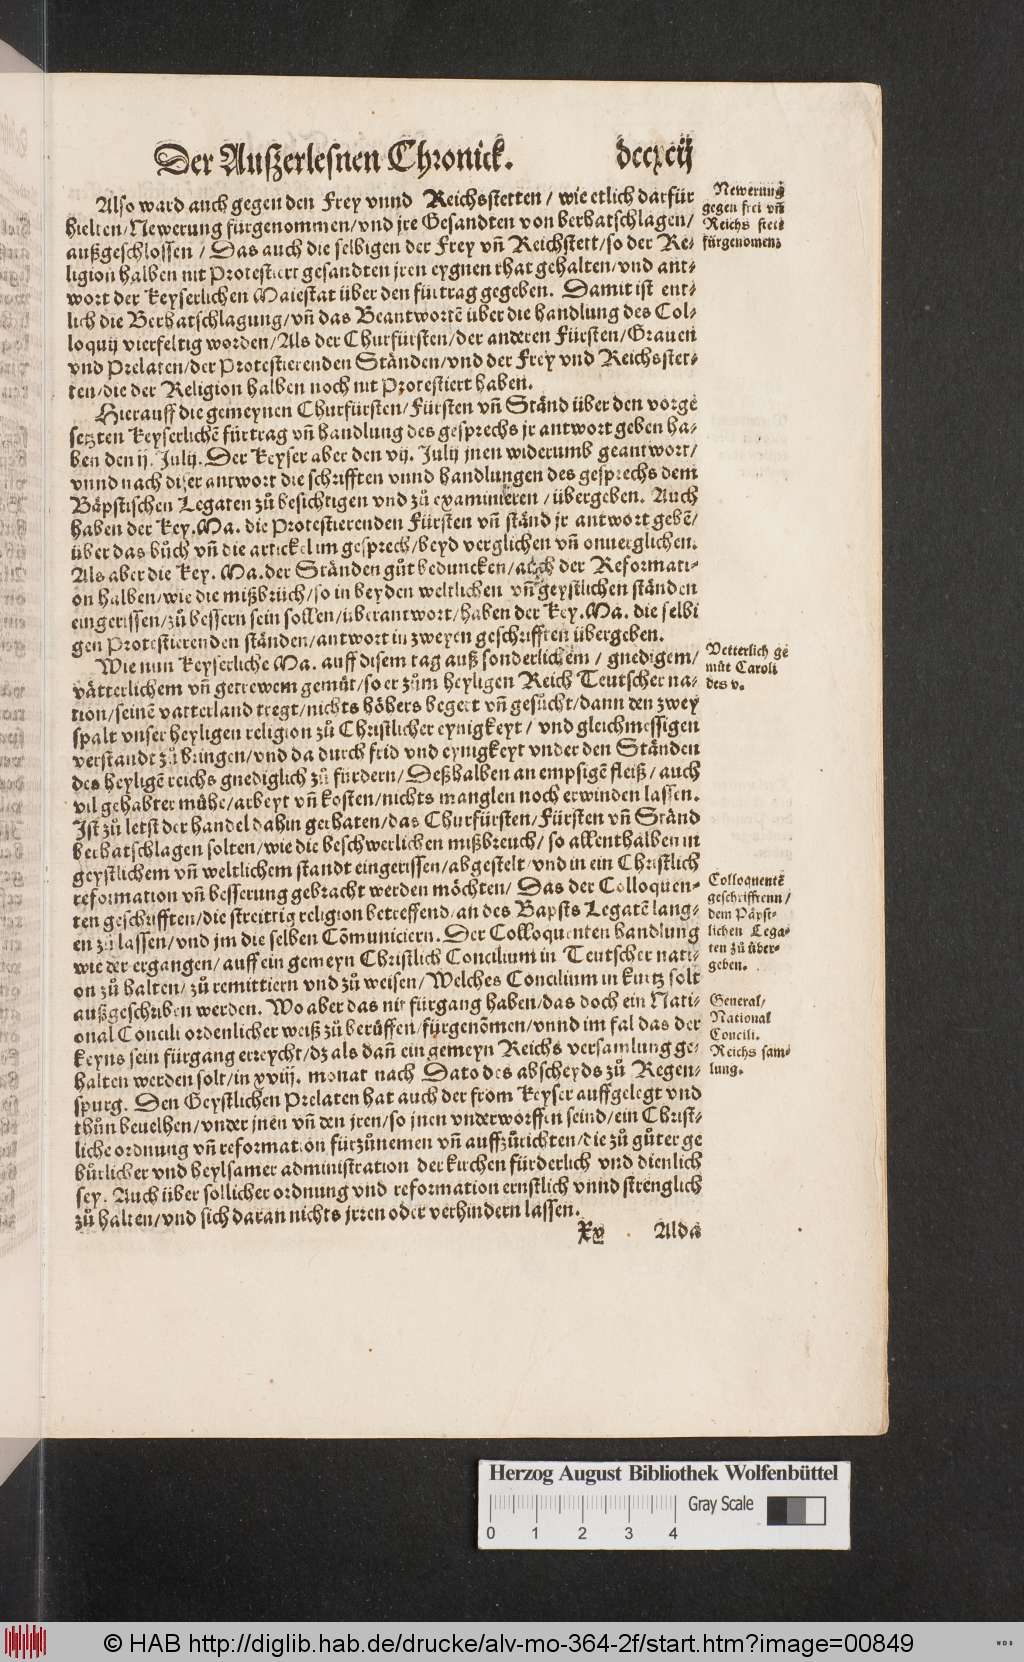 Der Außerlesnen Chronick. dccxcij
Also ward auch gegen den Frey vnnd Reichsstetten / wie etlich darfür
hielten / Newerung fürgenommen / vnd jre Gesandten von berhatschlagen /
außgeschlossen / Das auch die selbigen der Frey vñ Reichstett / so der Re-
ligion halben nit Protestiert gesandten jren eygnen rhat gehalten / vnd ant-
wort der Keyserlichen Maiestat über den fürtrag gegeben. Damit ist ent-
lich die Berhatschlagung / vñ das Beantwortẽ über die handlung des Col-
loquij vierfeltig worden / Als der Churfürsten / der anderen Fürsten / Grauen
vnd Prelaten / der Protestierenden Ständen / vnd der Frey vnd Reichsstet-
ten / die der Religion halben noch nit Protestiert haben.
Hierauff die gemeynen Churfürsten / Fürsten vñ Ständ über den vorge
setzten Keyserlichẽ fürtrag vñ handlung des gesprechs jr antwort geben ha-
ben den ij. Julij. Der Keyser aber den vij. Julij jnen widerumb geantwort /
vnnd nach diser antwort die schrifften vnnd handlungen des gesprechs dem
Bäpstischen Legaten zů besichtigen vnd zů examinieren / übergeben. Auch
haben der Key. Ma. die Protestierenden Fürsten vñ ständ jr antwort gebẽ /
über das bůch vñ die artickel im gesprech / beyd verglichen vñ onuerglichen.
Als aber die Key. Ma. der Ständen gůt beduncken / auch der Reformati-
on halben / wie die mißbrüch / so in beyden weltlichen vñ geystlichen ständen
eingerissen / zů bessern sein sollen / überantwort / haben der Key. Ma. die selbi
gen Protestierenden ständen / antwort in zweyen geschrifften übergeben.
Wie nun Keyserliche Ma. auff disem tag auß sonderlichem / gnedigem /
vätterlichem vñ getrewem gemüt / so er zům heyligen Reich Teutscher na-
tion / seinẽ vatterland tregt / nichts höhers begert vñ gesůcht / dann den zwey
spalt vnser heyligen religion zů Christlicher eynigkeyt / vnd gleichmessigen
verstandt zů bringen / vnd da durch frid vnd eynigkeyt vnder den Ständen
des heyligẽ reichs gnediglich zů fürdern / Deßhalben an empsigẽ fleiß / auch
vil gehabter mühe / arbeyt vñ kosten / nichts manglen noch erwinden lassen.
Ist zů letst der handel dahin gerhaten / das Churfürsten / Fürsten vñ Ständ
berhatschlagen solten / wie die beschwerlichen mißbreuch / so allenthalben in
geystlichem vñ weltlichem standt eingerissen / abgestelt / vnd in ein Christlich
reformation vñ besserung gebracht werden möchten / Das der Colloquen-
ten geschrifften / die streittig religion betreffend / an des Bapsts Legatẽ lang-
en zů lassen / vnd jm die selben Cõmuniciern. Der Colloquenten handlung
wie der ergangen / auff ein gemeyn Christlich Concilium in Teutscher nati-
on zů halten / zů remittiern vnd zů weisen / Welches Concilium in kurtz solt
außgeschriben werden. Wo aber das nit fürgang haben / das doch ein Nati-
onal Concili ordenlicher weiß zů berůffen / fürgenõmen / vnnd im fal das der
keyns sein fürgang erreycht / dz als dañ ein gemeyn Reichs versamlung ge-
halten werden solt / in xviij. monat nach Dato des abscheyds zů Regen-
spurg. Den Geystlichen Prelaten hat auch der from Keyser auffgelegt vnd
thůn beuelhen / vnder jnen vñ den jren / so jnen vnderworffen seind / ein Christ-
liche ordnung vñ reformation fürzůnemen vñ auffzůrichten / die zů gůter ge
bürlicher vnd heylsamer administration der kirchen fürderlich vnd dienlich
sey. Auch über sollicher ordnung vnd reformation ernstlich vnnd strenglich
zů halten / vnd sich daran nichts jrren oder verhindern lassen.
Xv Alda
Newerung
gegen frei vñ
Reichs stett
fürgenomen.
Vetterlich ge
müt Caroli
des v.
Colloquentẽ
geschrifftenn /
dem Päpst-
lichen Lega-
ten zů über-
geben.
General /
National
Concili.
Reichs sam-
lung.
Herzog August Bibliothek Wolfenbüttel
Gray Scale
0 1 2 3 4
© HAB http://diglib.hab.de/drucke/alv-mo-364-2f/start.htm?image=00849